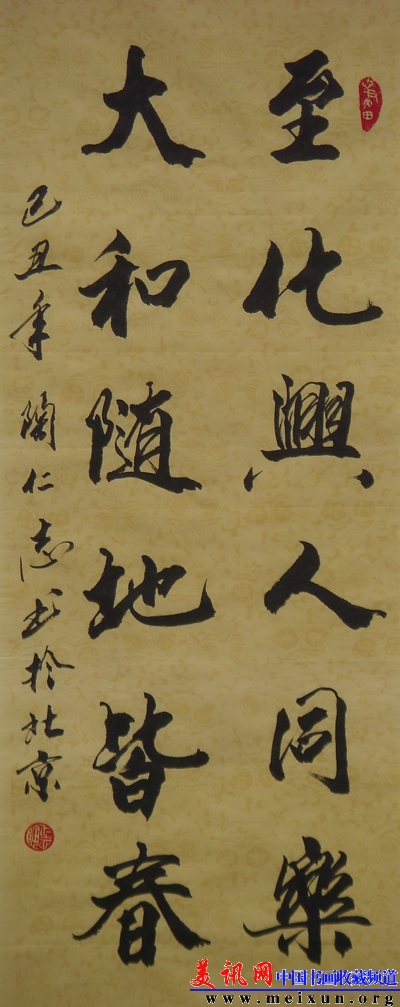 至化興人同樂
大和随地皆春
己丑年陶仁志书於北京
美讯网中国书画收藏频道
www.meixun.org